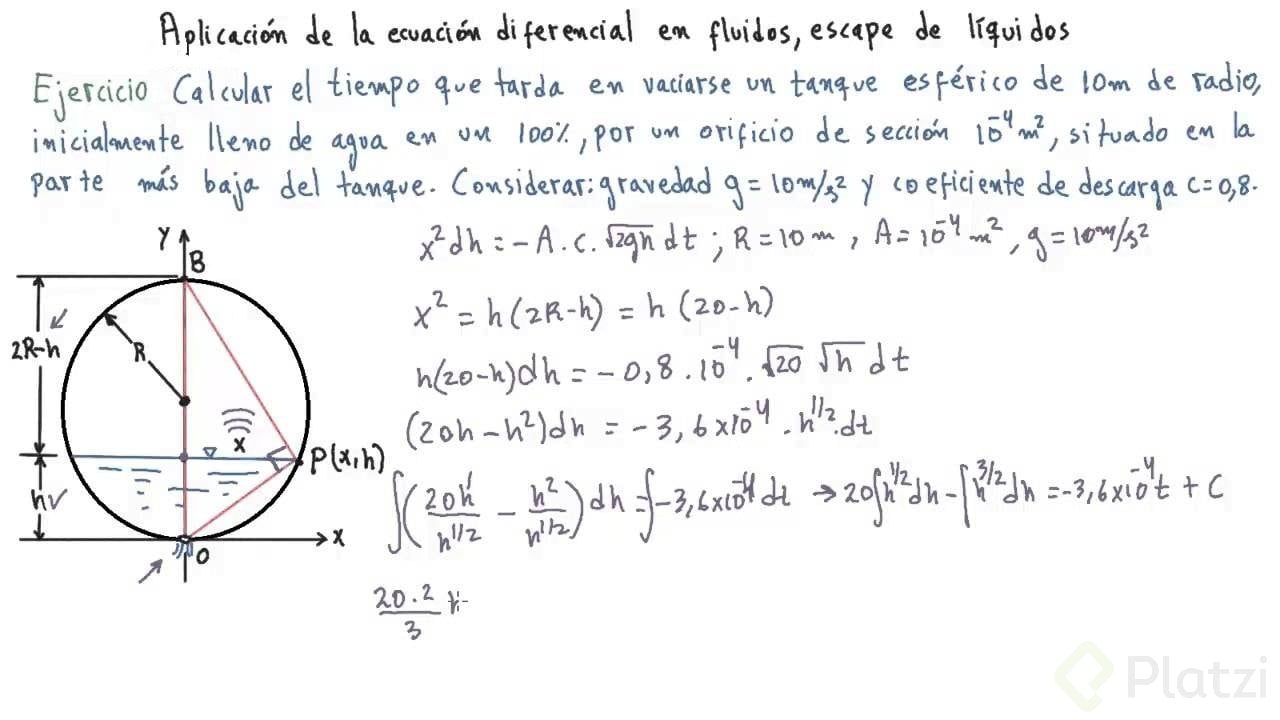 Aplicación de la ecuación diferencial en fluidos, escape de líquidos
Ejercicio Calcular el tiempo que tarda en vaciarse un tanque esférico de 10m de radio,
inicialmente lleno de agua en un 100%, por un orificio de sección 10⁻⁴m², situado en la
parte más baja del tanque. Considerar: gravedad g=10m/s² y coeficiente de descarga c=0,8.
x²dh = -A.c.√2gh dt ; R=10m, A=10⁻⁴m², g=10m/s²
x² = h(2R-h) = h(20-h)
h(20-h)dh = -0,8.10⁻⁴.√20 √h dt
(20h-h²)dh = -3,6x10⁻⁴.h^1/2.dt
∫(20h¹/h^1/2 - h²/h^1/2)dh = ∫-3,6x10⁻⁴dt → 20∫h^1/2dh - ∫h^3/2dh = -3,6x10⁻⁴t + C
20.2/3
Y
B
2R-h
R
x
P(x,h)
h
x
O
Platzi